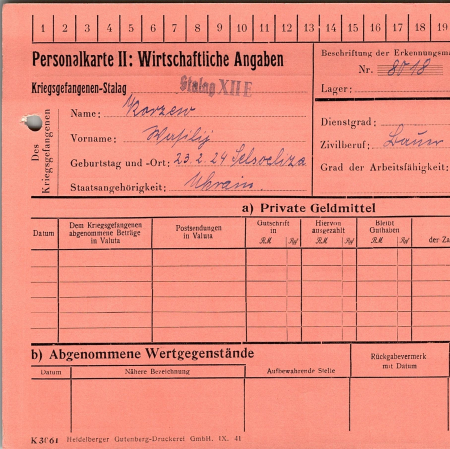 1 2 3 4 5 6 7 8 9 10 11 12 13 14 15 16 17 18 19
Personalkarte II: Wirtschaftliche Angaben
Kriegsgefangenen-Stalag Stalag XII E
Des Kriegsgefangenen
Name: Korzew
Vorname: Wasilij
Geburtstag und -Ort: 23.2.24
Staatsangehörigkeit: Ukrain
Beschriftung der Erkennungsm
Nr. 8018
Lager:
Dienstgrad:
Zivilberuf: Bauer
Grad der Arbeitsfähigkeit:
a) Private Geldmittel
Datum
Dem Kriegsgefangenen abgenommene Beträge in Valuta
Postsendungen in Valuta
Gutschrift in RM Rpf
Hiervon ausgezahlt RM Rpf
Bleibt Guthaben RM Rpf
der Za
b) Abgenommene Wertgegenstände
Datum Nähere Bezeichnung Aufbewahrende Stelle
Rückgabevermerk mit Datum
K 3061 Heidelberger Gutenberg-Druckerei GmbH. IX. 41